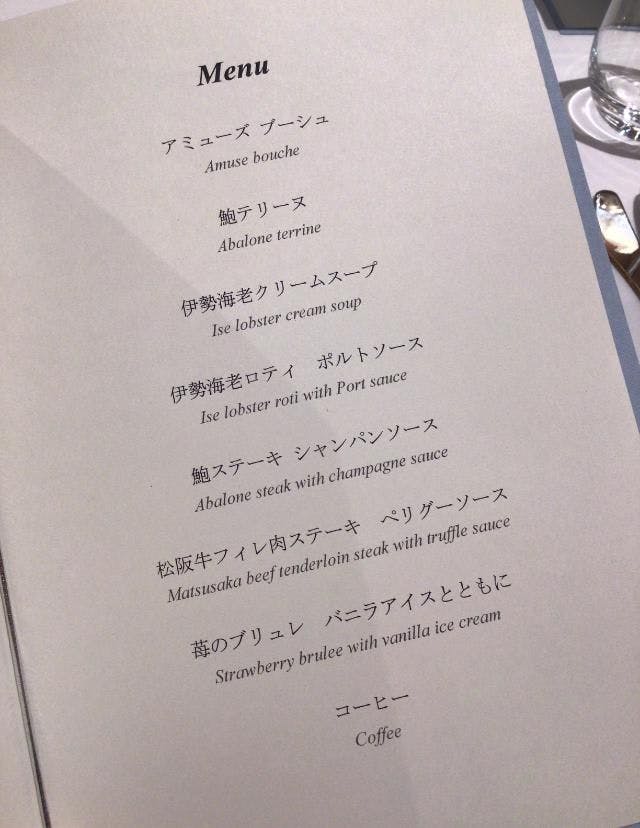 Menu
アミューズ ブーシュ
Amuse bouche
鮑テリーヌ
Abalone terrine
伊勢海老クリームスープ
Ise lobster cream soup
伊勢海老ロティ　ポルトソース
Ise lobster roti with Port sauce
鮑ステーキ シャンパンソース
Abalone steak with champagne sauce
松阪牛フィレ肉ステーキ　ペリグーソース
Matsusaka beef tenderloin steak with truffle sauce
苺のブリュレ　バニラアイスとともに
Strawberry brulee with vanilla ice cream
コーヒー
Coffee